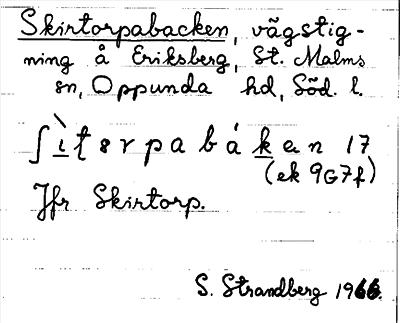 Skirtorpabacken, vägstig-
ning å Eriksberg, St. Malms
sn, Oppunda hd, Söd. l.
ʃìt̲ɐrpabák̲en 17
(ek 9G7f)
Jfr Skirtorp.
S. Strandberg 1966.